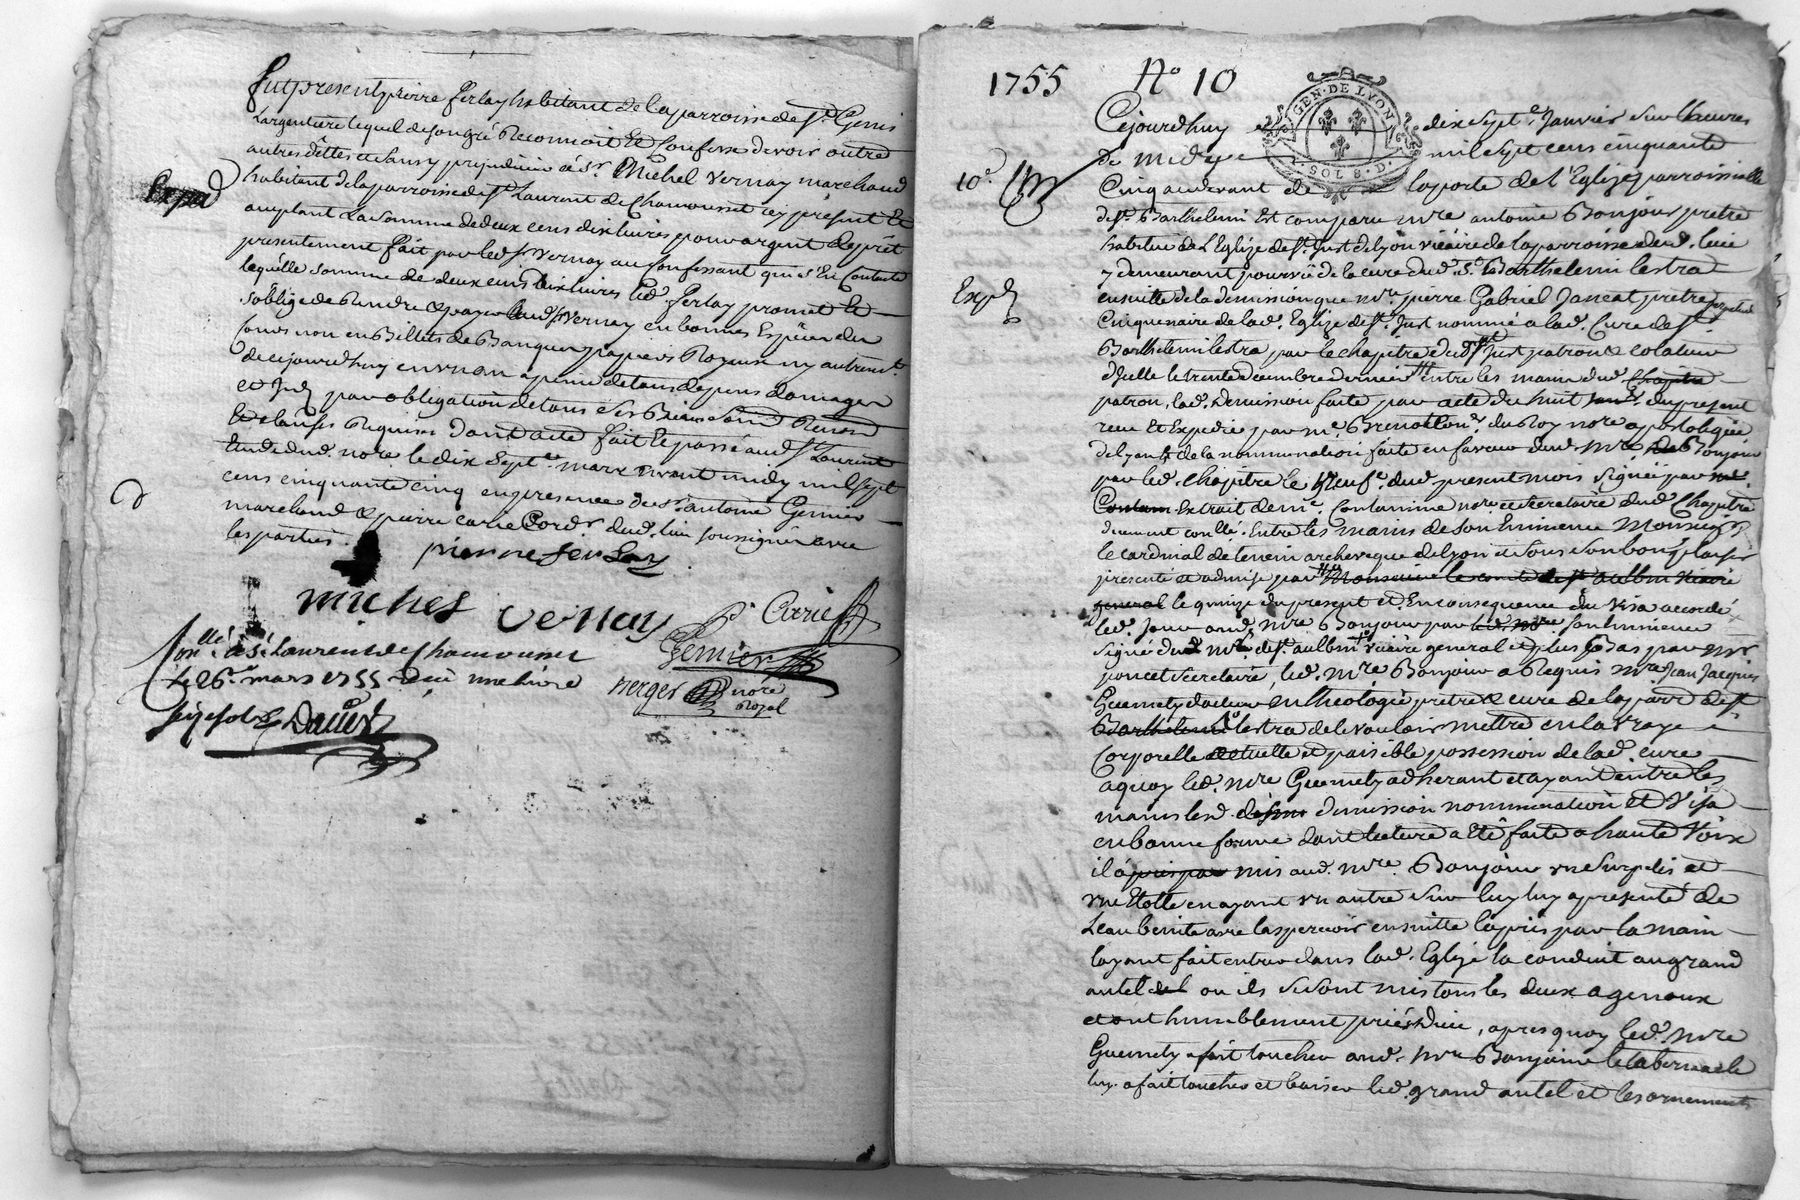 Expéd
Fut present pierre ferlay habitant de la parroisse de St. Genis
Largentiere lequel de son gré Reconnoit Et Confesse devoir outre
autres dettes et sans y prejudicier a sr. Michel vernay marchand
habitant de la parroisse de St. Laurent de Chamousset icy present Et
acceptant La somme de deux cens dix livres pour argent de prêt
presentement fait par led. sr vernay au Confessant qui s'En Contente
laquelle somme de deux cens dix livres led. ferlay promet Et
s'oblige de Rendre & payer aud. sr vernay en bonnes Espèces de
Cours non en Billets de Banque papiers Royaux ny autremt.
de cejourdhuy en un an a peine de tous depens domages
et Int. par obligation de tous ses Biens
Et clauses Requises Dont acte fait Et passé aud. St. Laurent
Etude dud. nore. le dix sept. mars avant midy mil sept
cens cinquante cinq en presence de sr. antoine Gemier
marchand & pierre Carrie Cordr. dud. lieu soussignés avec
les parties.
pierre ferlay
michel vernay
P. Carrie
Gemier
verger nore Royal
Con.llé a St. Laurent de Chamousset
le 26e. mars 1755 Reçu une livre
seize sols
1755 No 10
GEN. DE LYON
SOL 8 D.
10e.
Expéd
Cejourdhuy dix sept. Janvier sur lheure
de midy mil sept cens cinquante
Cinq audevant de la porte de l'Eglize parroissialle
de St. Barthelemi Est comparu mre antoine Bonjour pretre
habitué de L'Eglize de St. Just de Lyon vicaire de la parroisse dud. lieu
y demeurant pourvû de la cure dud. St. Barthelemi lestra
ensuitte de la demission que mre pierre Gabriel Jancat pretre perpetuel
Cinquenaire de lad. Eglize de St. Just nommé a lad. Cure de St.
Barthelemi lestra par le chapitre dud. St Just patron & colateur
d'icelle le trente decembre dernier entre les mains dud. Chapitre
patron, lad. Demission faite par acte du huit du present
reçu Et Expedié par me. Brenot Con.er du Roy nore apostolique
de Lyon & de la nommination faite en faveur dud. Mre Bonjour
par led. chapitre le Neufe. dud. present mois signée par
Extrait de me. Contamine nore et secretaire dud. Chapitre
duement con.llé. Entre les mains de son Eminence Monseigr.
le cardinal de tencin archeveque de Lyon et sous son bon plaisir
presenté et admise par Monsieur le comte de St aulbin vicaire
general le quinze du present et En consequence du visa accordé
led. Jour aud. mre Bonjour par son Eminence
signé du mre. de St. aulbin vicaire general et plus Bas par mre
poncet secretaire, led. Mre Bonjour a Requis Mre Jean Jacques
Guemety docteur en theologie pretre & curé de la parr. de St.
Barthelemi lestra de le vouloir mettre en la vraye
Corporelle actuelle et paisible possession de lad. cure
aquoy led. mre Guemety adherant et ayant entre les
mains lesd. demission nommination et Visa
en bonne forme dont lecture a Eté faite a haute Voix
il a mis aud. mre. Bonjour une surplis et
une Etolle en ayant un autre sur luy luy a presenté de
Leau benite avec laspersoir ensuitte l'a pris par la main
layant fait entrer dans lad. Eglize la conduit au grand
autel ou ils se sont mis tous les deux a genoux
et ont humblement priés Dieu, apres quoy led. mre
Guemety a fait toucher aud. Mre Bonjour le tabernacle
luy a fait toucher et baiser led. grand autel et les ornements